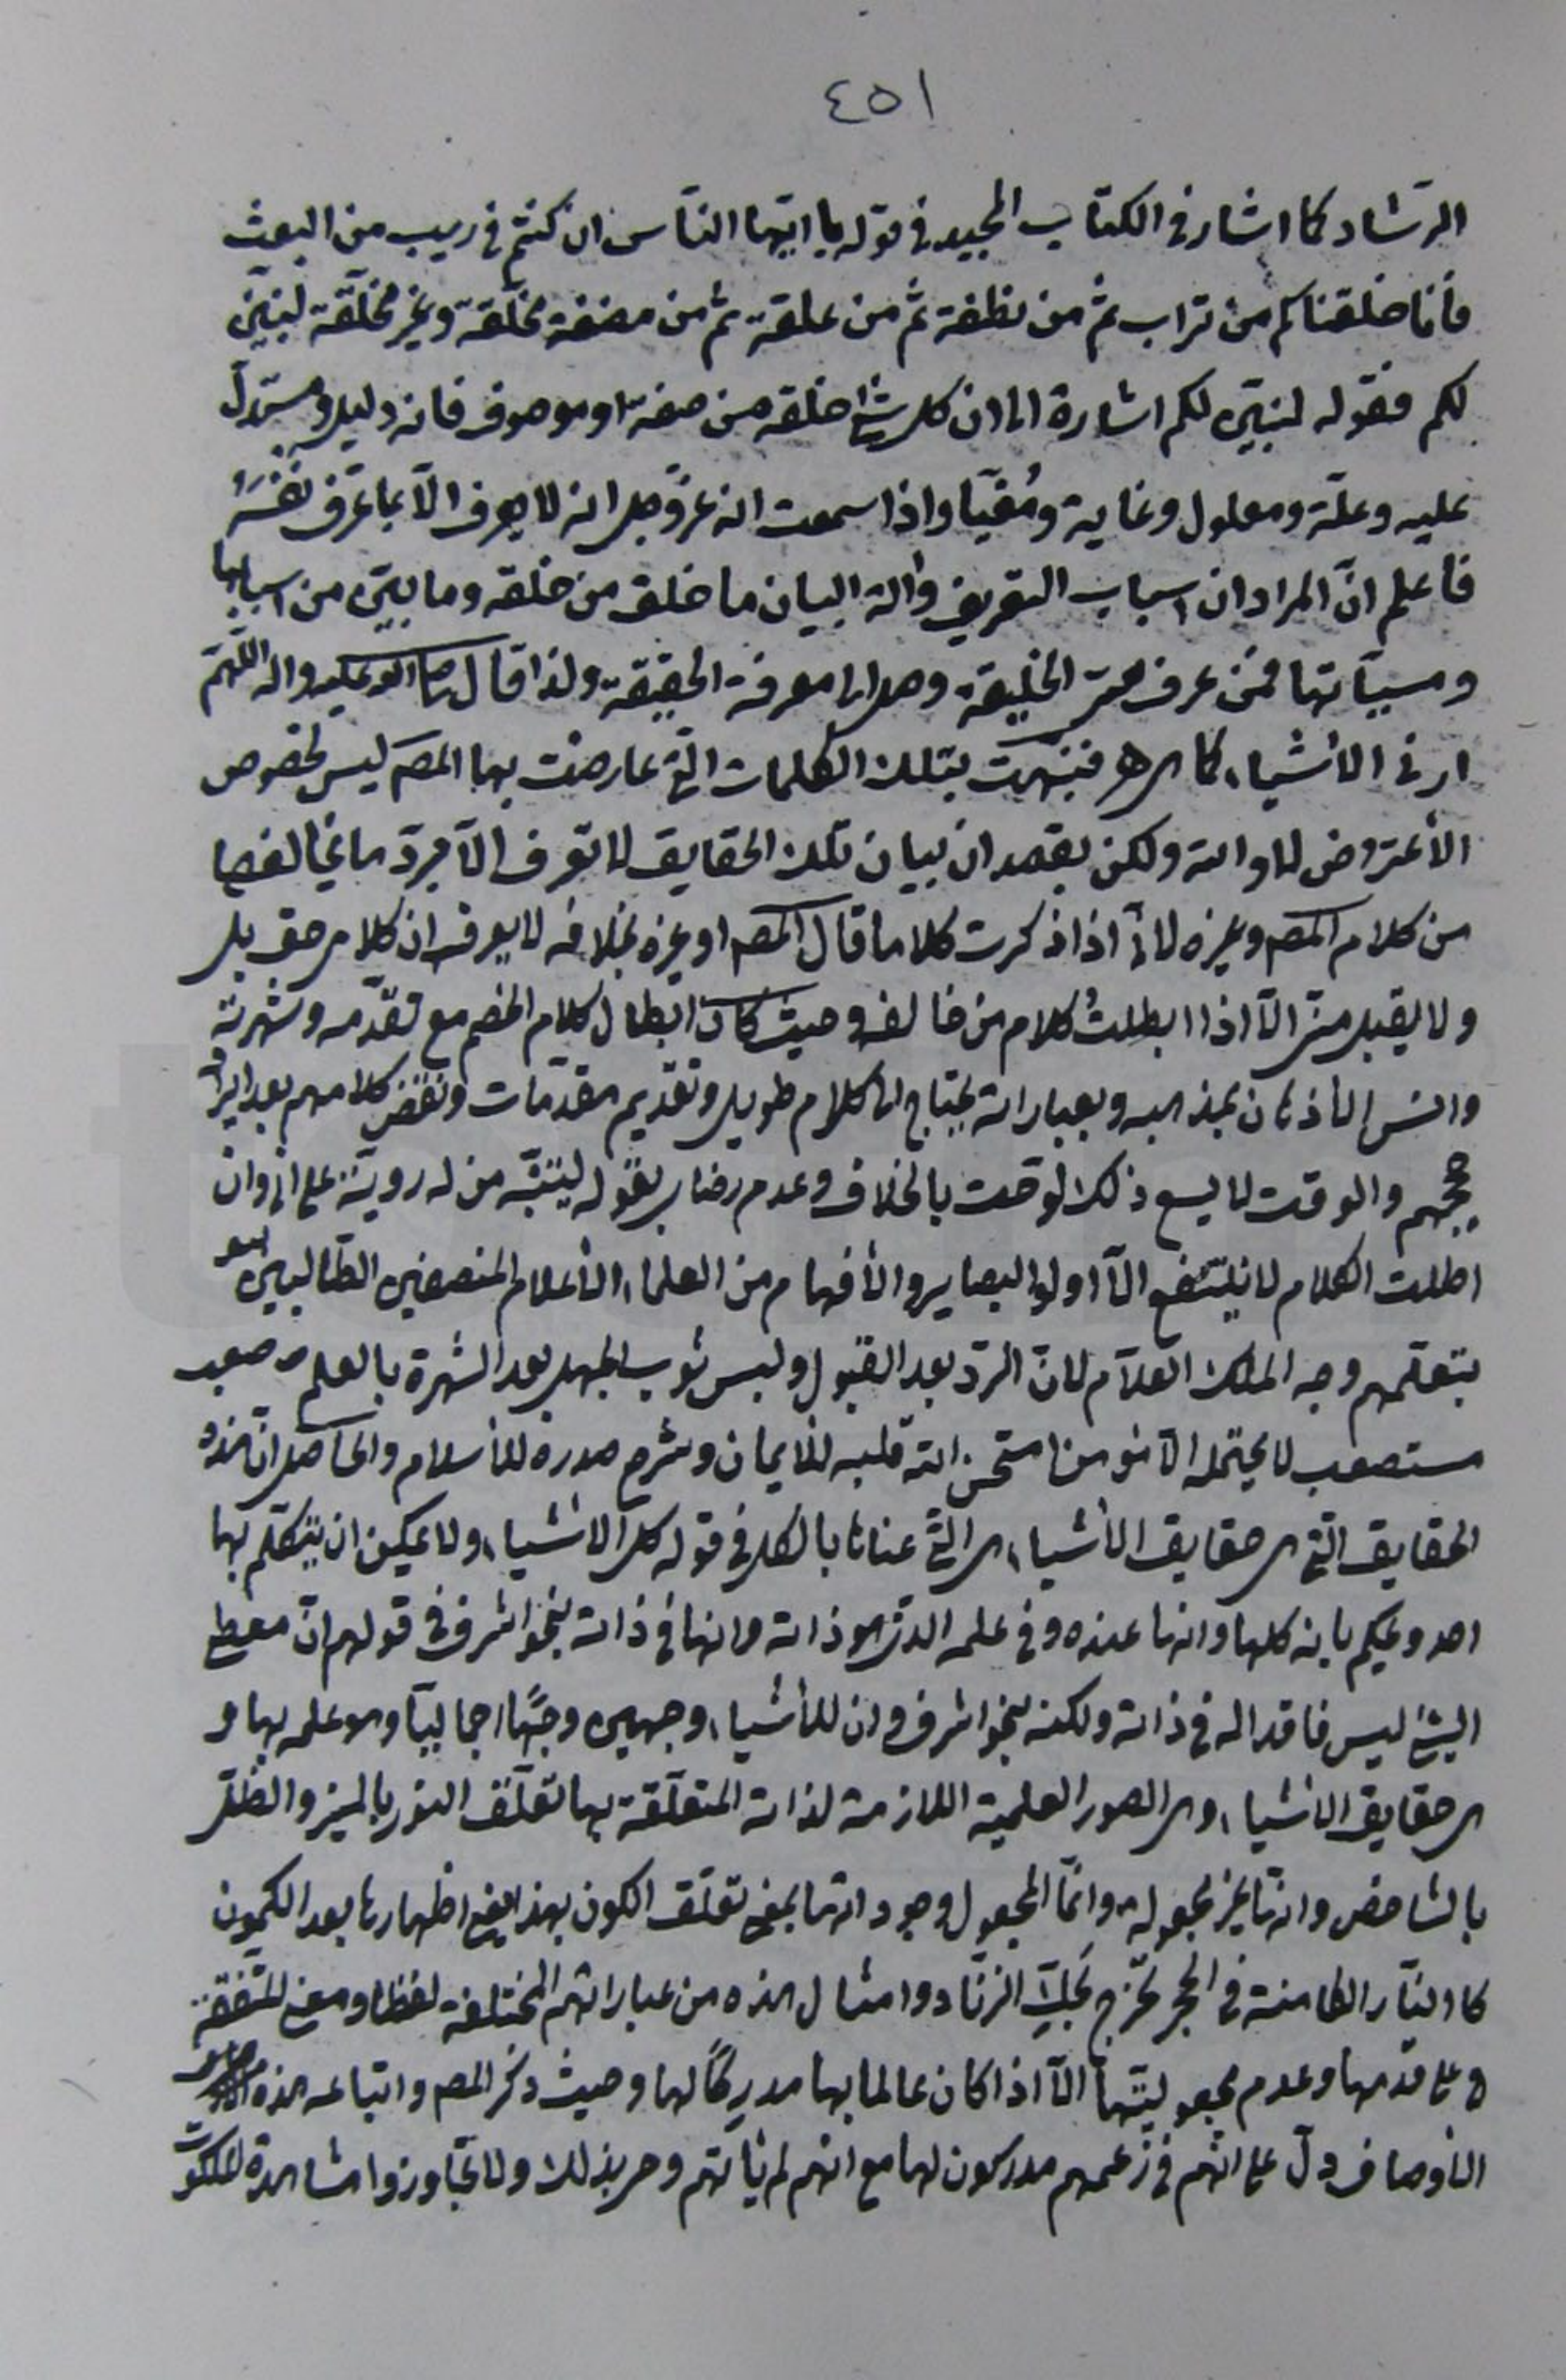 ٤٥١
الرشاد كما اشار فى الكتاب المجيد فى قوله يا ايّها النّاس ان كنتم فى ريب من البعث
فانّا خلقناكم من تراب ثم من نطفة ثم من علقة ثم من مضغة مخلّقة وغير مخلّقة لنبيّن
لكم فقوله لنبيّن لكم اشارة الى ان كل شئ خلقه من صفة او موصوف فانه دليل ومستدلّ
عليه وعلّة ومعلول وغاية ومُغيّا واذا سمعت انه عزّ وجل انه لا يعرف الّا بما عرّف نفسَهُ
فاعلم انّ المراد ان اسباب التعريف وآلة البيان ما خلق من خلقه وما بيّن من اسبابها
ومسبّباتها فمن عرف الخليقة وصل الى معرفة الحقيقة ولذا قال صلى الله عليه وآله اللّهمّ
ارنى الأشياء كما هى فنبّهت بتلك الكلمات التى عارضت بها المص ليس لخصوص
الأعتراض لا والله ولكن بقصد ان بيان تلك الحقايق لا تعرف الّا بردّ ما يخالفها
من كلام المص وغيره لانّى اذا ذكرت كلاما قال المص او غيره بخلافه لا يعرف ان كلامى حق بل
ولا يقبل منّى الّا اذا ابطلتُ كلام من خالفه وحيث كان ابطال كلام الخصم مع تقدّمه وشهرته
وانس الأذهان بمذهبه وبعباراته يحتاج الى كلام طويل وتقديم مقدّمات ونقض كلامهم بعد ايراد
حججهم والوقت لا يسع ذلك لوّحت بالخلاف وعدم رضاى بقوله ليتنبّه من له رويّة على انى وان
اطلت الكلام لا ينتفع الّا اولوا البصاير والأفهام من العلماء الأعلام المنصفين الطّالبين
بتعلّمهم وجه الملك العلّام لانّ الردّ بعد القبول ولبس ثوب الجهل بعد الشهرة بالعلم صعب
مستصعب لا يحتمله الّا مؤمن امتحن الله قلبه للأيمان وشرح صدره للأسلام والحاصل انّ هذه
الحقايق التى هى حقايق الأشياء هى التى عناها بالكل فى قوله كل الأشياء ولا يمكن ان يتكلّم بها
احد ويحكم بانه كلها وانها عنده وفى علمه الذى هو ذاته وانها فى ذاته بنحو اشرف فى قولهم انّ معطى
الشئ ليس فاقدا له فى ذاته ولكنه بنحو اشرف وان للأشياء وجهين وجهًا اجماليّا وهو علمه بها و
هى حقايق الأشياء وهى الصور العلمية اللازمة لذاته المتعلّقة بها تعلّق النور بالمنير والظلّ
بالشاخص وانها غير مجعولة وانّما المجعول وجوداتها بمعنى تعلّق الكون بها بمعنى اظهارها بعد الكمون
كالنّار الكامنة فى الحجر تخرج بحكّ الزناد وامثال هذه من عباراتهم المختلفة لفظا ومعنى المتّفقة
على قدمها وعدم مجعوليّتها الّا اذا كان عالما بها مدركًا لها وحيث ذكر المص واتباعه هذه
الأوصاف دلّ على انّهم فى زعمهم مدركون لها مع انهم لم يأتهم وحى بذلك ولا تجاوزوا مشاهدة الملكوت